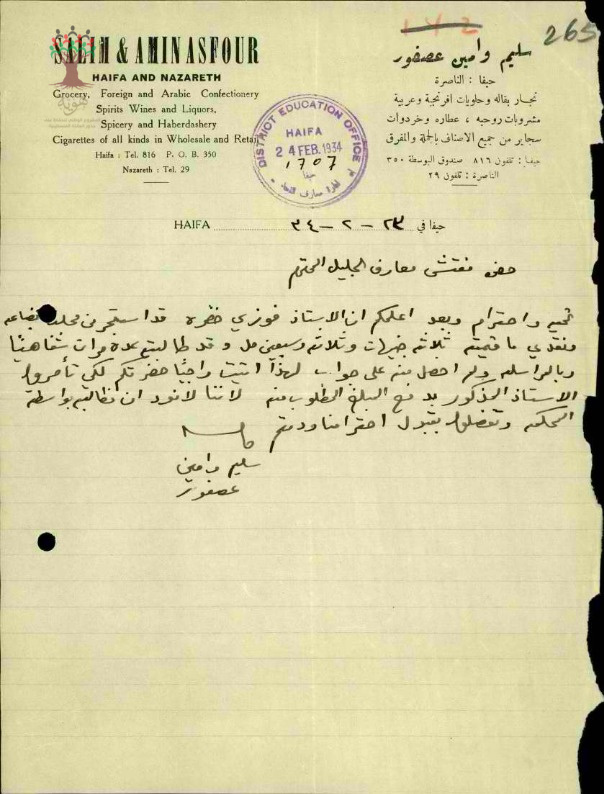 142
265
SALIM & AMIN ASFOUR
HAIFA AND NAZARETH
Grocery, Foreign and Arabic Confectionery
Spirits Wines and Liquors,
Spicery and Haberdashery
Cigarettes of all kinds in Wholesale and Retail
Haifa : Tel. 816 P. O. B. 350
Nazareth : Tel. 29
سليم وامين عصفور
حيفا : الناصرة
تجار بقاله وحلويات افرنجية وعربية
مشروبات روحيه ، عطاره وخردوات
سجاير من جميع الاصناف بالجملة والمفرق
حيفا : تلفون ٨١٦ صندوق البوسطة ٣٥٠
الناصرة : تلفون ٢٩
DISTRICT EDUCATION OFFICE
HAIFA
24 FEB. 1934
1707
حيفا
HAIFA ٢٣ - ٢ - ٣٤ حيفا في
حضرة مفتش معارف الجليل المحترم
تحيه واحترام وبعد اعلمكم ان الاستاذ فوزي خضره قد استجر من محلنا بضاعه
ونقدي ما قيمته ثلاثة جنيهات وثلاثه وسبعين مل وقد طالبته عدة مرات شفاهيًا
وبالمراسله ولم احصل منه على جواب لهذا اتيت راجيًا حضرتكم لكي تأمروا
الاستاذ المذكور بدفع المبلغ المطلوب منه لاننا لا نود ان نطالبه بواسطة
المحكمه وتفضلوا بقبول احترامنا ودمتم
سليم وامين
عصفور